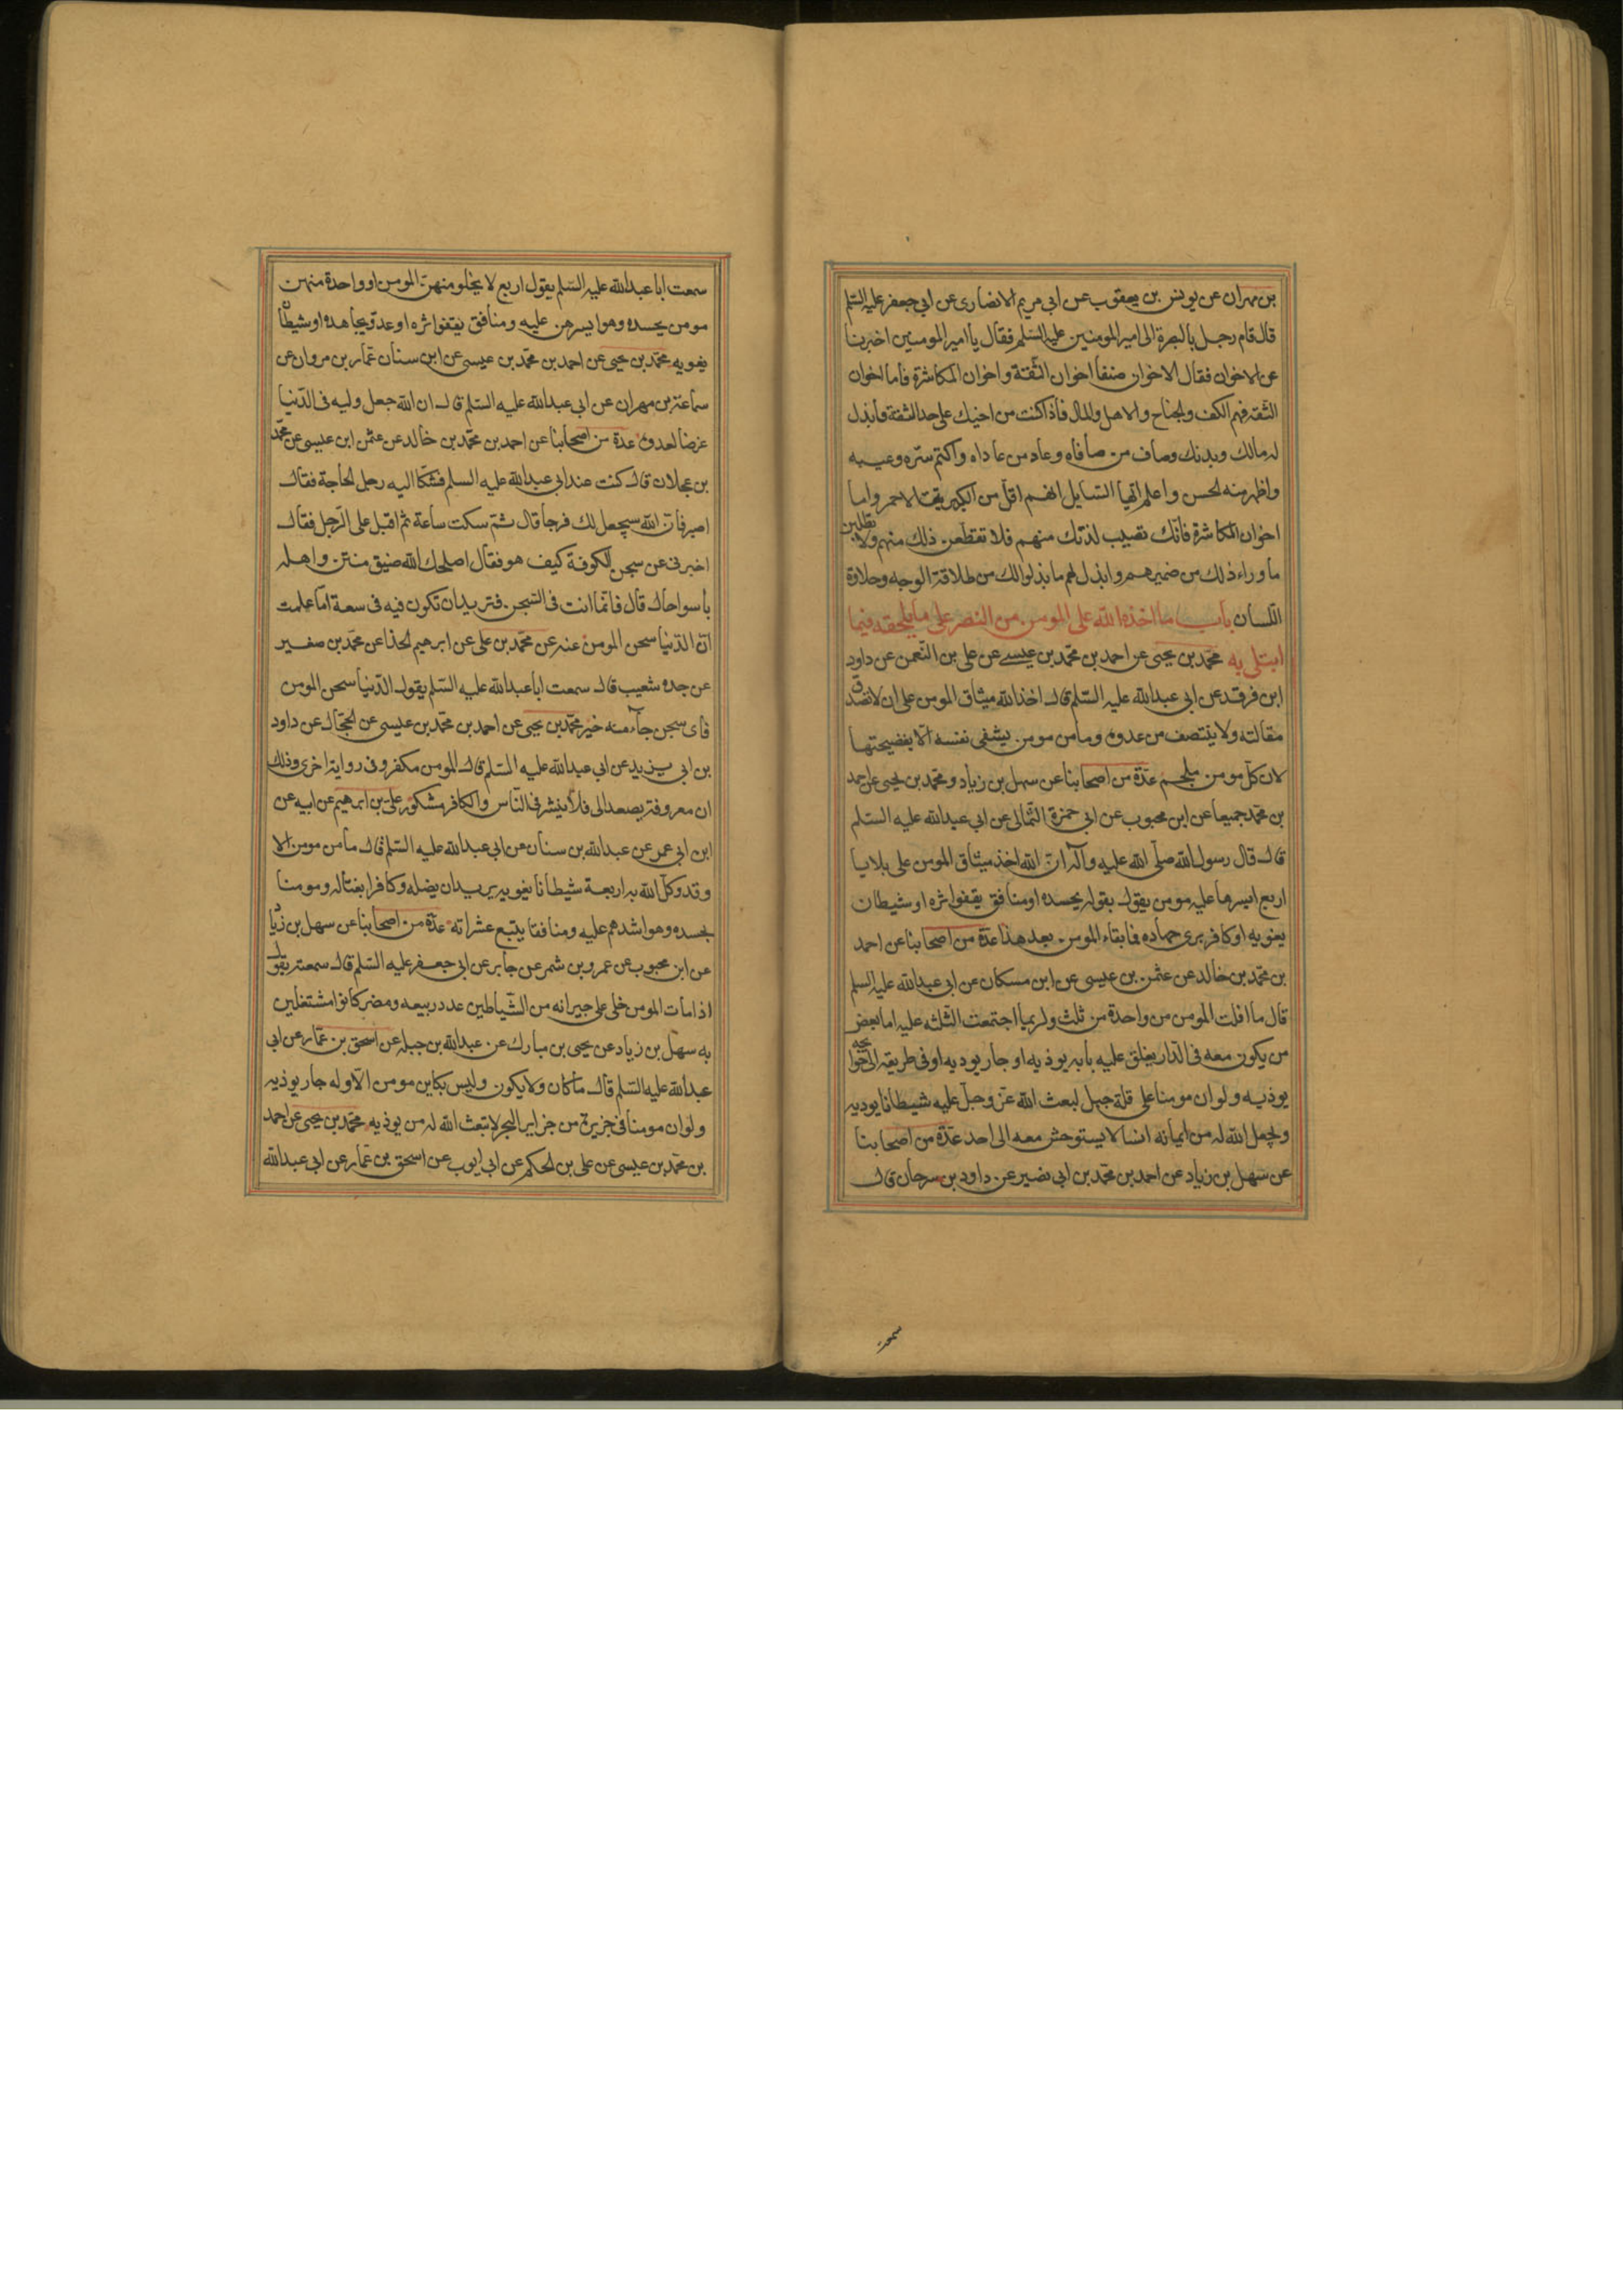 بن مهران عن يونس بن يعقوب عن ابى مريم الانصارى عن ابى جعفر عليه السلم
قال قام رجل بالبصرة الى امير المومنين عليه السلم فقال يا امير المومنين اخبرنا
عن الاخوان فقال الاخوان صنفا اخوان الثقة واخوان المكاشرة فاما اخوان
الثقه فهم الكف والجناح والاهل والمال فاذا كنت من اخيك على حد الثقة فابذل
له مالك وبدنك وصاف من صافاه وعاد من عاداه واكتم سره وعيبه
واظهر منه الحسن واعلم ايها السايل انهم اقل من الكبريت الاحمر واما
اخوان المكاشرة فانك تصيب لذتك منهم فلا تقطعن ذلك منهم ولا تطلبن
ما وراء ذلك من ضميرهم وابذل لهم ما بذلوا لك من طلاقة الوجه وحلاوة
اللسان باب ما اخذه الله على المومن من الصبر على ما يلحقه فيما
ابتلى به محمد بن يحيى عن احمد بن محمد بن عيسى عن على بن النعمن عن داود
ابن فرقد عن ابى عبدالله عليه السلم قال اخذ الله ميثاق المومن على ان لا تصدق
مقالته ولا ينتصف من عدوه وما من مومن يشفى نفسه الا بفضيحتها
لان كل مومن ملجم عدة من اصحابنا عن سهل بن زياد ومحمد بن يحيى عن احمد
بن محمد جميعا عن ابن محبوب عن ابى حمزة الثمالى عن ابى عبدالله عليه السلم
قال قال رسول الله صلى الله عليه وآله ان الله اخذ ميثاق المومن على بلايا
اربع ايسرها عليه مومن يقول بقوله يحسده او منافق يقفوا ثره او شيطان
يغويه او كافر يرى جهاده فما بقاء المومن بعد هذا عدة من اصحابنا عن احمد
بن محمد بن خالد عن عثمن بن عيسى عن ابن مسكان عن ابى عبدالله عليه السلم
قال ما افلت المومن من واحدة من ثلث ولربما اجتمعت الثلثه عليه اما بعض
من يكون معه فى الدار يغلق عليه بابه يوذيه او جار يوديه او فى طريقه الى حوايجه
يوذيه ولو ان مومنا على قلة جبل لبعث الله عز وجل عليه شيطانا يوديه
ويجعل الله له من ايمانه انسا لا يستوحش معه الى احد عدة من اصحابنا
عن سهل بن زياد عن احمد بن محمد بن ابى نصير عن داود بن سرحان قال
سمعت
سمعت ابا عبدالله عليه السلم يقول اربع لا يخلو منهن المومن او واحدة منهن
مومن يحسده وهو ايسرهن عليه ومنافق يقفوا ثره او عدو يجاهده او شيطان
يغويه محمد بن يحيى عن احمد بن محمد بن عيسى عن ابن سنان عمار بن مروان عن
سماعة بن مهران عن ابى عبدالله عليه السلم قال ان الله جعل وليه فى الدنيا
غرضا لعدوه عدة من اصحابنا عن احمد بن محمد بن خالد عن عثمن ابن عيسى عن محمد
بن عجلان قال كنت عند ابى عبدالله عليه السلم فشكا اليه رجل الحاجة فقال
اصبر فان الله سيجعل لك فرجا قال ثم سكت ساعة ثم اقبل على الرجل فقال
اخبرنى عن سجن الكوفة كيف هو فقال اصلحك الله ضيق منتن واهله
باسوا حال قال فانما انت فى السجن فتريد ان تكون فيه فى سعة اما علمت
ان الدنيا سجن المومن عنه عن محمد بن على عن ابرهيم الحذا عن محمد بن صغير
عن جده شعيب قال سمعت ابا عبدالله عليه السلم يقول الدنيا سجن المومن
فاى سجن جآء منه خير محمد بن يحيى عن احمد بن محمد بن عيسى عن الحجال عن داود
بن ابى يزيد عن ابى عبدالله عليه السلم قال المومن مكفر وفى رواية اخرى وذلك
ان معروفه يصعد الى فلا ينشر فى الناس والكافر مشكور على بن ابرهيم عن ابيه عن
ابن ابى عمر عن عبدالله بن سنان عن ابى عبدالله عليه السلم قال ما من مومن الا
وقد وكل الله به اربعة شيطانا يغويه يريد ان يضله وكافرا يغتاله ومومنا
يحسده وهو اشدهم عليه ومنافقا يتبع عثراته عدة من اصحابنا عن سهل بن زياد
عن ابن محبوب عن عمرو بن شمر عن جابر عن ابى جعفر عليه السلم قال سمعته يقول
اذا مات المومن خلى على جيرانه من الشياطين عدد ربيعه ومضر كانوا مشتغلين
به سهل بن زياد عن يحيى بن مبارك عن عبدالله بن جبله عن اسحق بن عمار عن ابى
عبدالله عليه السلم قال ما كان ولا يكون وليس بكاين مومن الا وله جار يوذيه
ولو ان مومنا فى جزيرة من جزاير البحر لابتعث الله له من يوذيه محمد بن يحيى عن احمد
بن محمد بن عيسى عن على بن الحكم عن ابى ايوب عن اسحق بن عمار عن ابى عبدالله